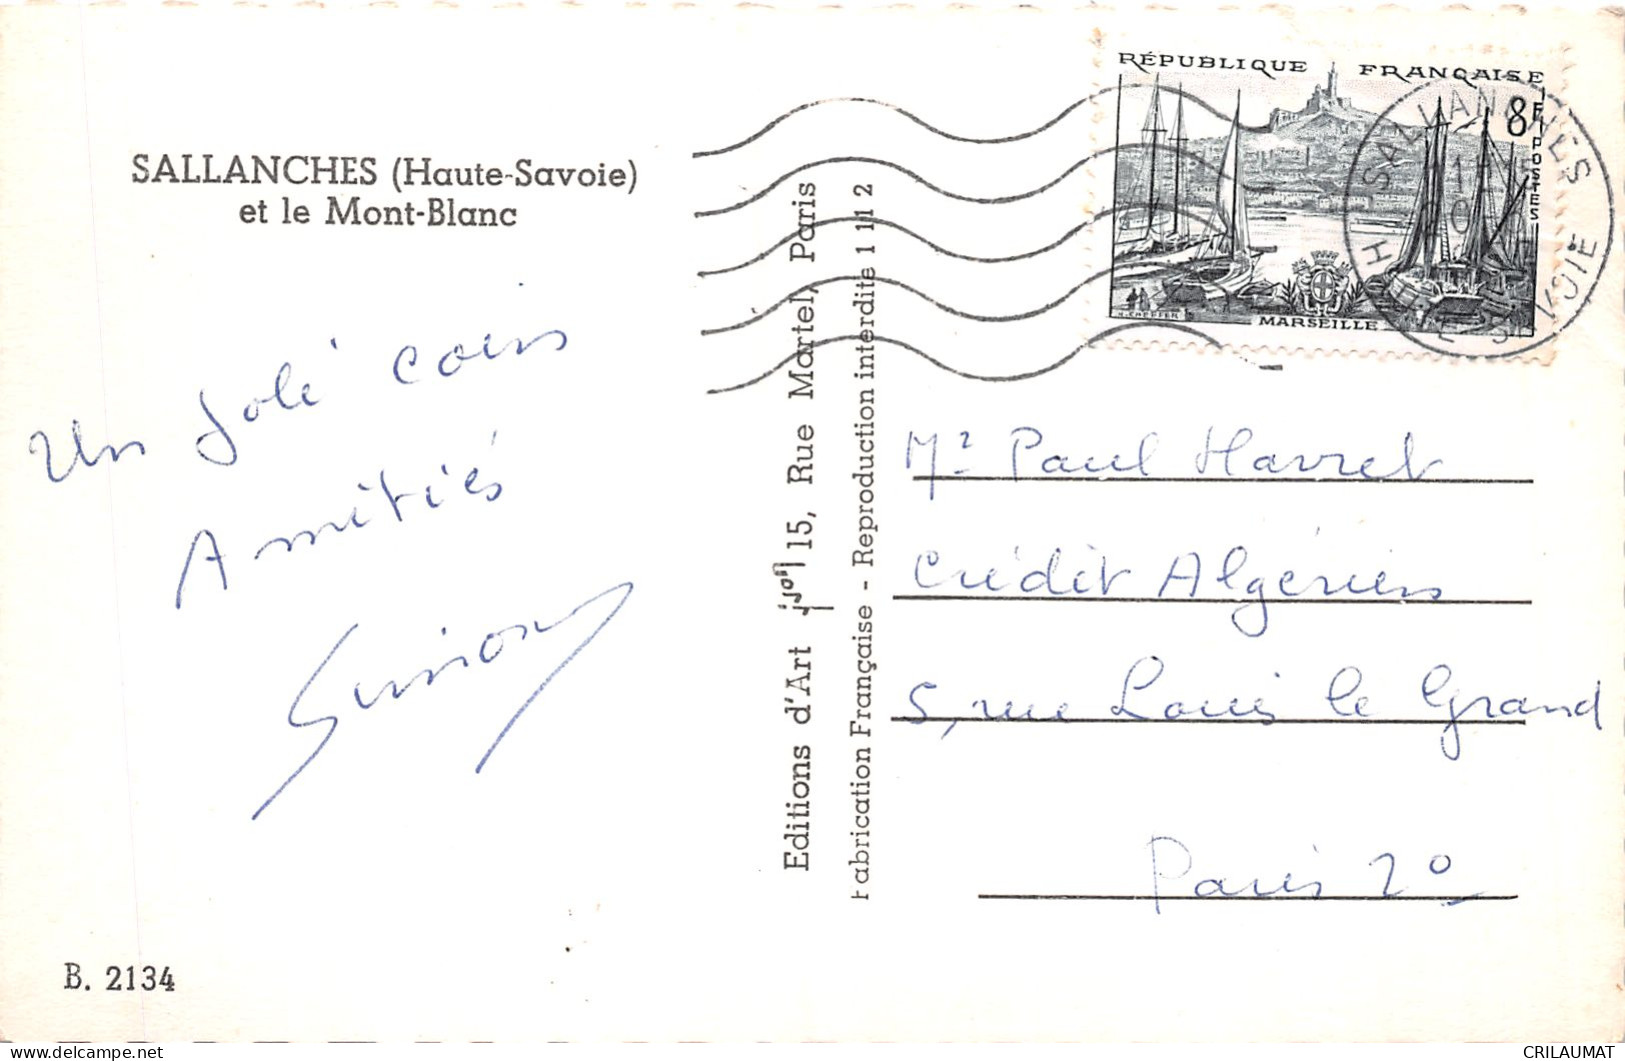 SALLANCHES (Haute-Savoie)
et le Mont-Blanc
Un joli coin
Amitiés
B. 2134
Editions d'Art 15, Rue Martel, Paris
Fabrication Française - Reproduction interdite 1 11 2
RÉPUBLIQUE FRANÇAISE
8F
POSTES
MARSEILLE
SALLANCHES
HTE SAVOIE
Mr Paul Havret
Crédit Algérien
5, rue Louis le Grand
Paris 2°
CRILAUMAT